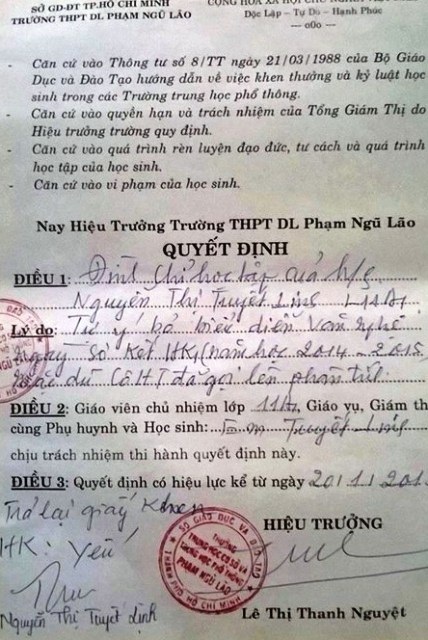 SỞ GD-ĐT TP.HỒ CHÍ MINH
TRƯỜNG THPT DL PHẠM NGŨ LÃO
Độc Lập - Tự Do - Hạnh Phúc
--- o0o ---
- Căn cứ vào Thông tư số 8/TT ngày 21/03/1988 của Bộ Giáo
Dục và Đào Tạo hướng dẫn về việc khen thưởng và kỷ luật học
sinh trong các Trường trung học phổ thông.
- Căn cứ vào quyền hạn và trách nhiệm của Tổng Giám Thị do
Hiệu trưởng trường quy định.
- Căn cứ vào quá trình rèn luyện đạo đức, tư cách và quá trình
học tập của học sinh.
- Căn cứ vào vi phạm của học sinh.
Nay Hiệu Trưởng Trường THPT DL Phạm Ngũ Lão
QUYẾT ĐỊNH
ĐIỀU 1: Đình chỉ học tập của h/s
Nguyễn Thị Truyết Linh
Lý do: Tự ý bỏ biểu diễn văn nghệ
ngày sơ kết HKI (năm học 2014 - 2015
mặc dù Cô H.T đã gọi lên phân tích
ĐIỀU 2: Giáo viên chủ nhiệm lớp 11A1, Giáo vụ, Giám th
cùng Phụ huynh và Học sinh: Em Truyết Linh
chịu trách nhiệm thi hành quyết định này.
ĐIỀU 3: Quyết định có hiệu lực kể từ ngày 20/1/201
Trả lại giấy khen
HK: Yếu
HIỆU TRƯỞNG
SỞ GIÁO DỤC VÀ ĐÀO TẠO
TRƯỜNG
TRUNG HỌC CƠ SỞ VÀ
TRUNG HỌC PHỔ THÔNG
PHẠM NGŨ LÃO
THÀNH PHỐ HỒ CHÍ MINH
Nguyễn Thị Truyết Linh
Lê Thị Thanh Nguyệt